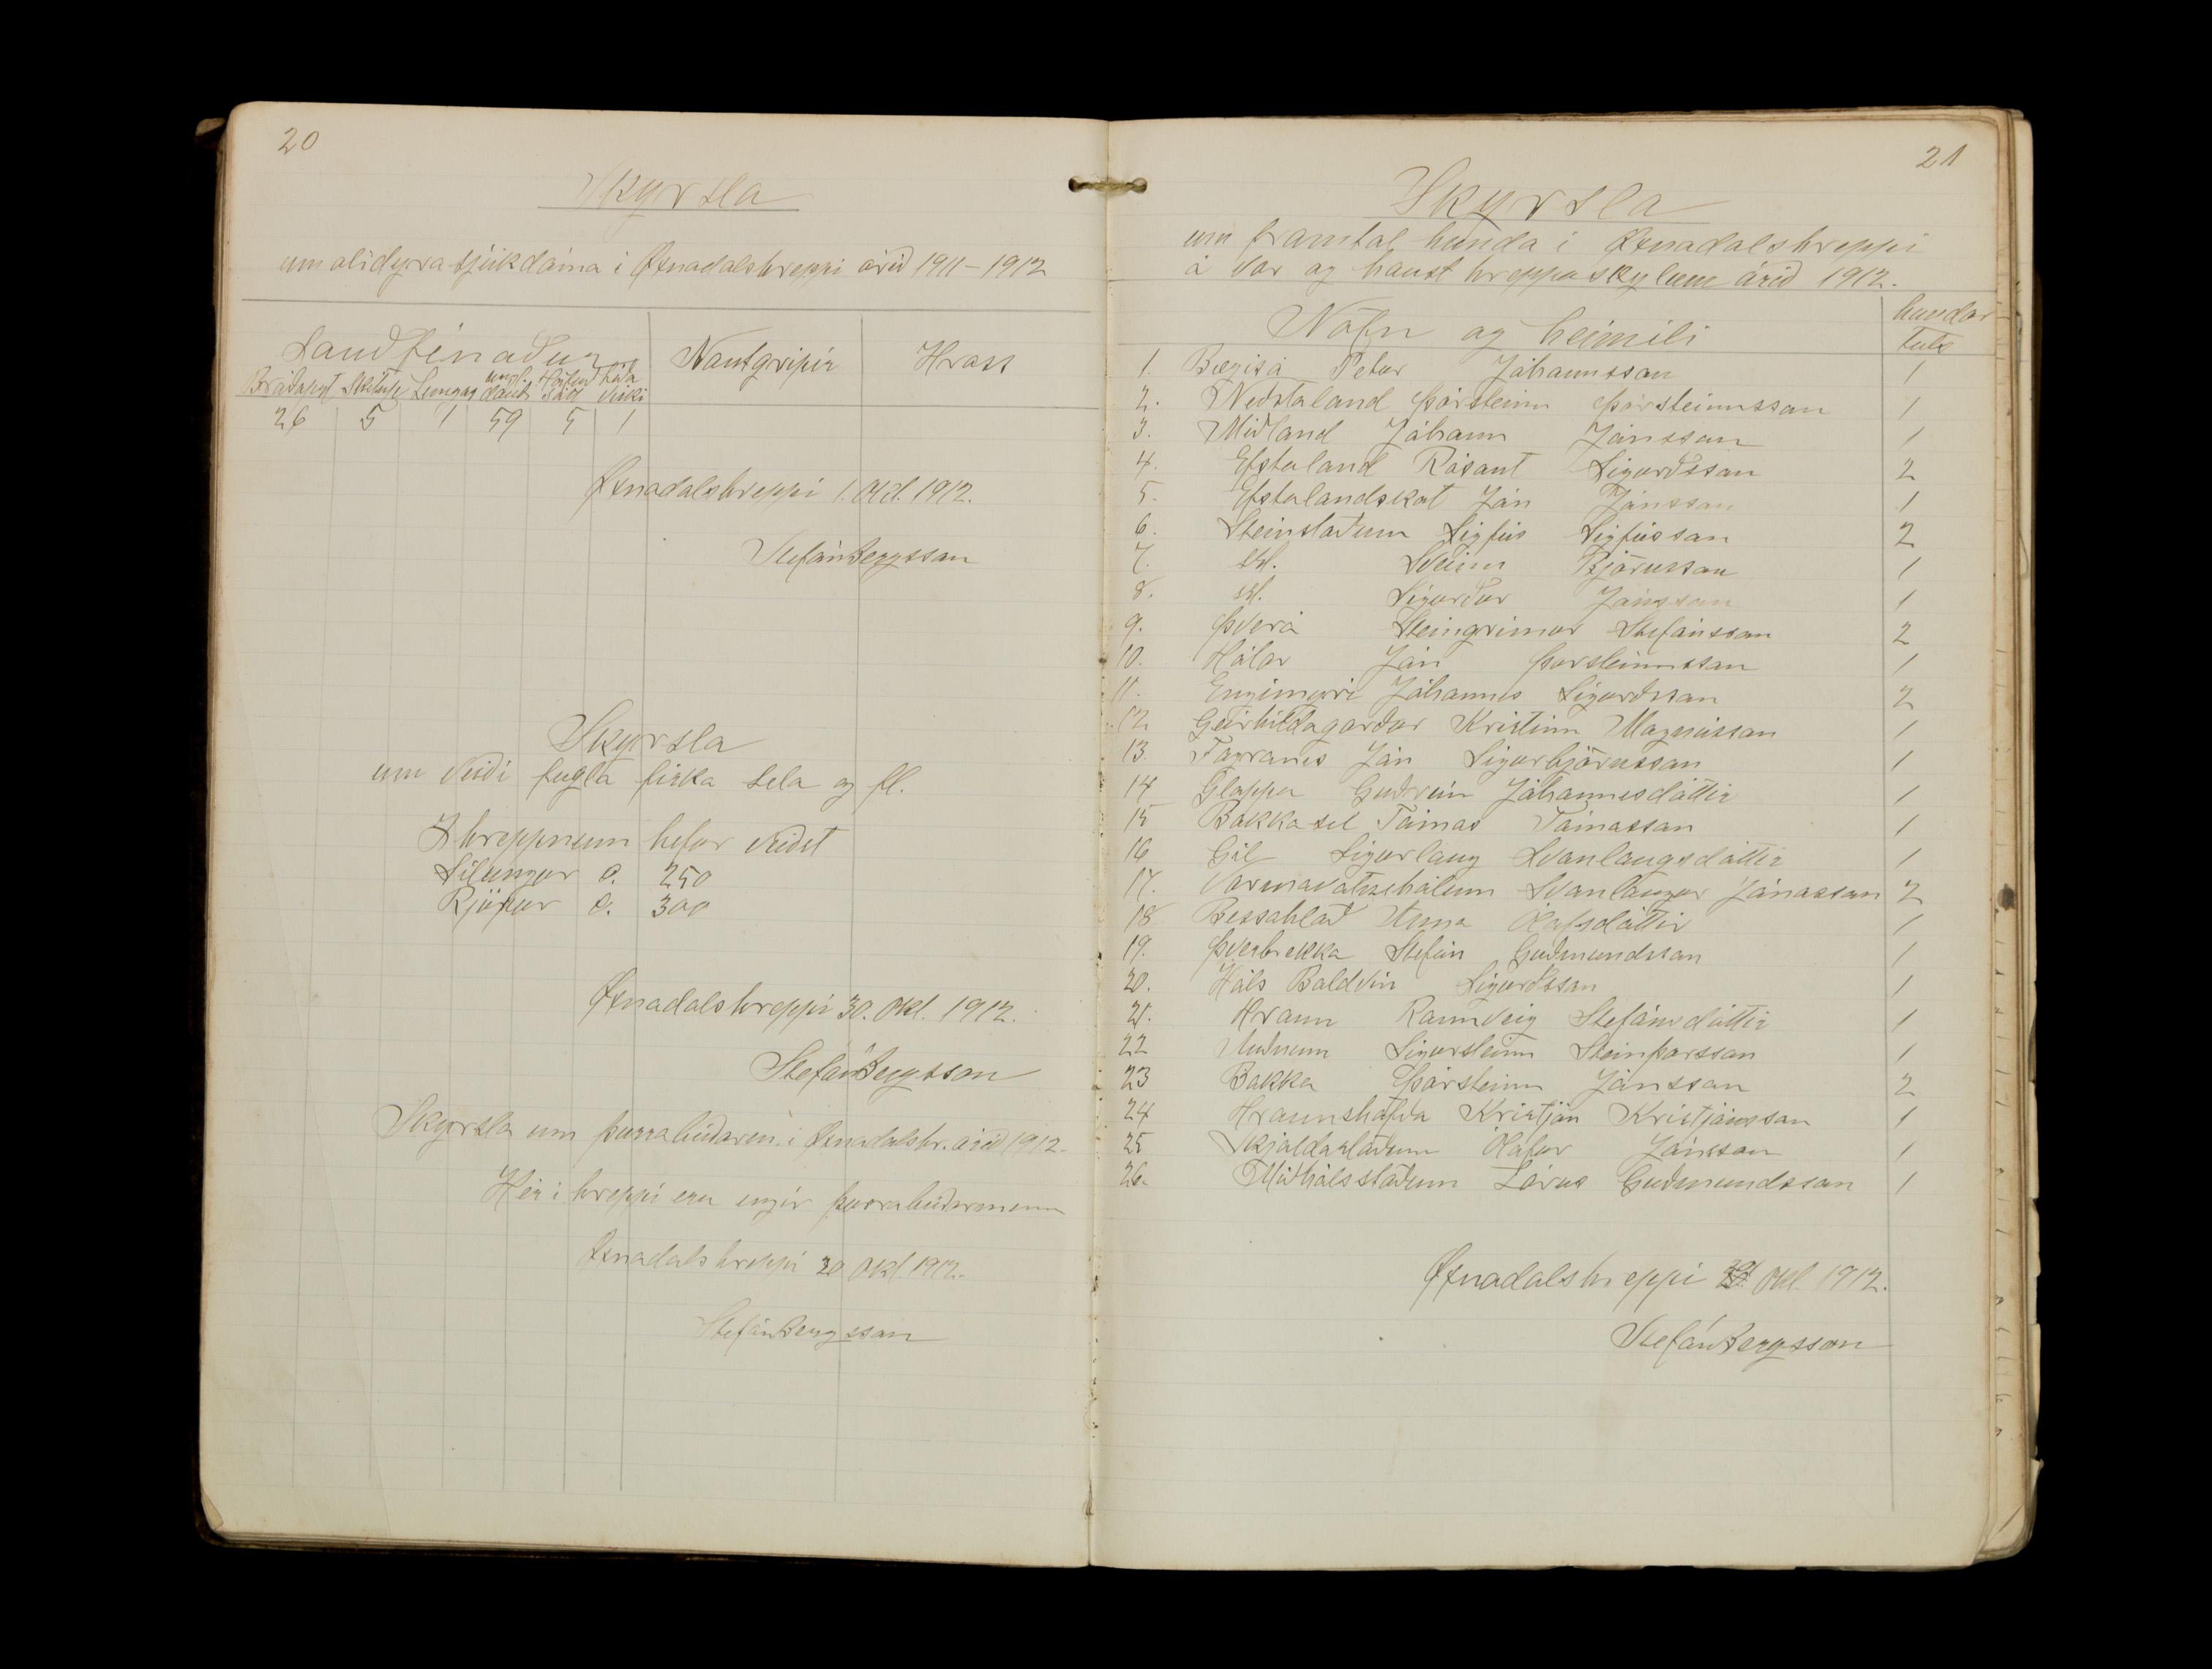 20
Skyrsla
um alidyra sjúkdóma i Öxnadalshreppi árið 1911-1912
Sauðfénaður
Nautgripir
Hross
Bráðapest
Lungna
26 5 1 59 5 1
Öxnadalshreppi 1. Okt. 1912.
Stefán Bergsson
Skyrsla
um veiði fugla fiska sela og fl.
I hreppnum hefur veiðst
Silungur 0. 250
Rjúpur 0. 300
Öxnadalshreppi 30. Okt. 1912.
Stefán Bergsson
Skyrsla um þurrabúðarm. i Öxnadalshr. árið 1912.
Hér i hreppi eru engir þurrabúðarmenn
Öxnadalshreppi 30 Okt 1912.
Stefán Bergsson
21
Skyrsla
um framtal hunda i Öxnadalshreppi
á vor og haust hreppaskylum árið 1912.
Nöfn og heimili
hundar
tals
1. Bægisá Petur Jóhannsson 1
2. Neðstaland Þorsteinn Þorsteinnsson 1
3. Miðland Jóhann Jónsson 1
4. Efstaland Rósant Sigurðsson 2
5. Efstalandskot Jón Jónsson 1
6. Steinstaðum Sigfús Sigfússon 2
7. st. Sveinn Björnsson 1
8. st. Sigurður Jónsson 1
9. Þverá Steingrimur Stefánsson 2
10. Hólar Jón Þorsteinnsson 1
11. Engimyri Jóhannes Sigurðsson 2
12 Geirhildagarður Kristinn Magnússon 1
13. Fagranes Jón Sigurbjörnsson 1
14 Gloppu Guðrún Jóhannesdóttir 1
15 Bakkasel Tómas Tómasson 1
16 Gil Sigurlaug Svanlaugsdóttir 1
17. Varmavatnshólum Svanlaugur Jónasson 2
18 Bessahlað Anna Ólafsdóttir 1
19. Þverbrekka Stefán Guðmundsson 1
20. Háls Baldvin Sigurðsson 1
21. Hraun Rannveig Stefánsdóttir 1
22 Auðnum Sigursteinn Steinþorsson 1
23 Bakka Þorsteinn Jónsson 2
24 Hraunshöfða Kristján Kristjánsson 1
25 Skjaldarstaðum Ólafur Jónsson 1
26. Miðhálsstaðum Lárus Guðmundsson 1
Öxnadalshreppi Okt. 1912.
Stefán Bergsson